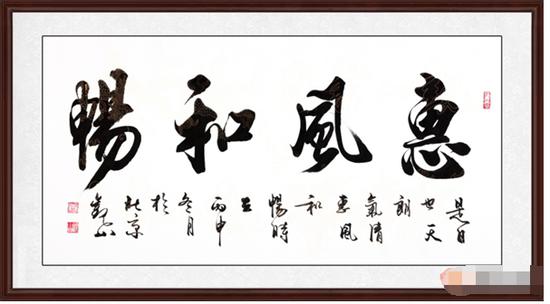 惠風和暢
是日
也天
朗
氣清
惠風
和
暢時
在
丙申
冬月
於
北京